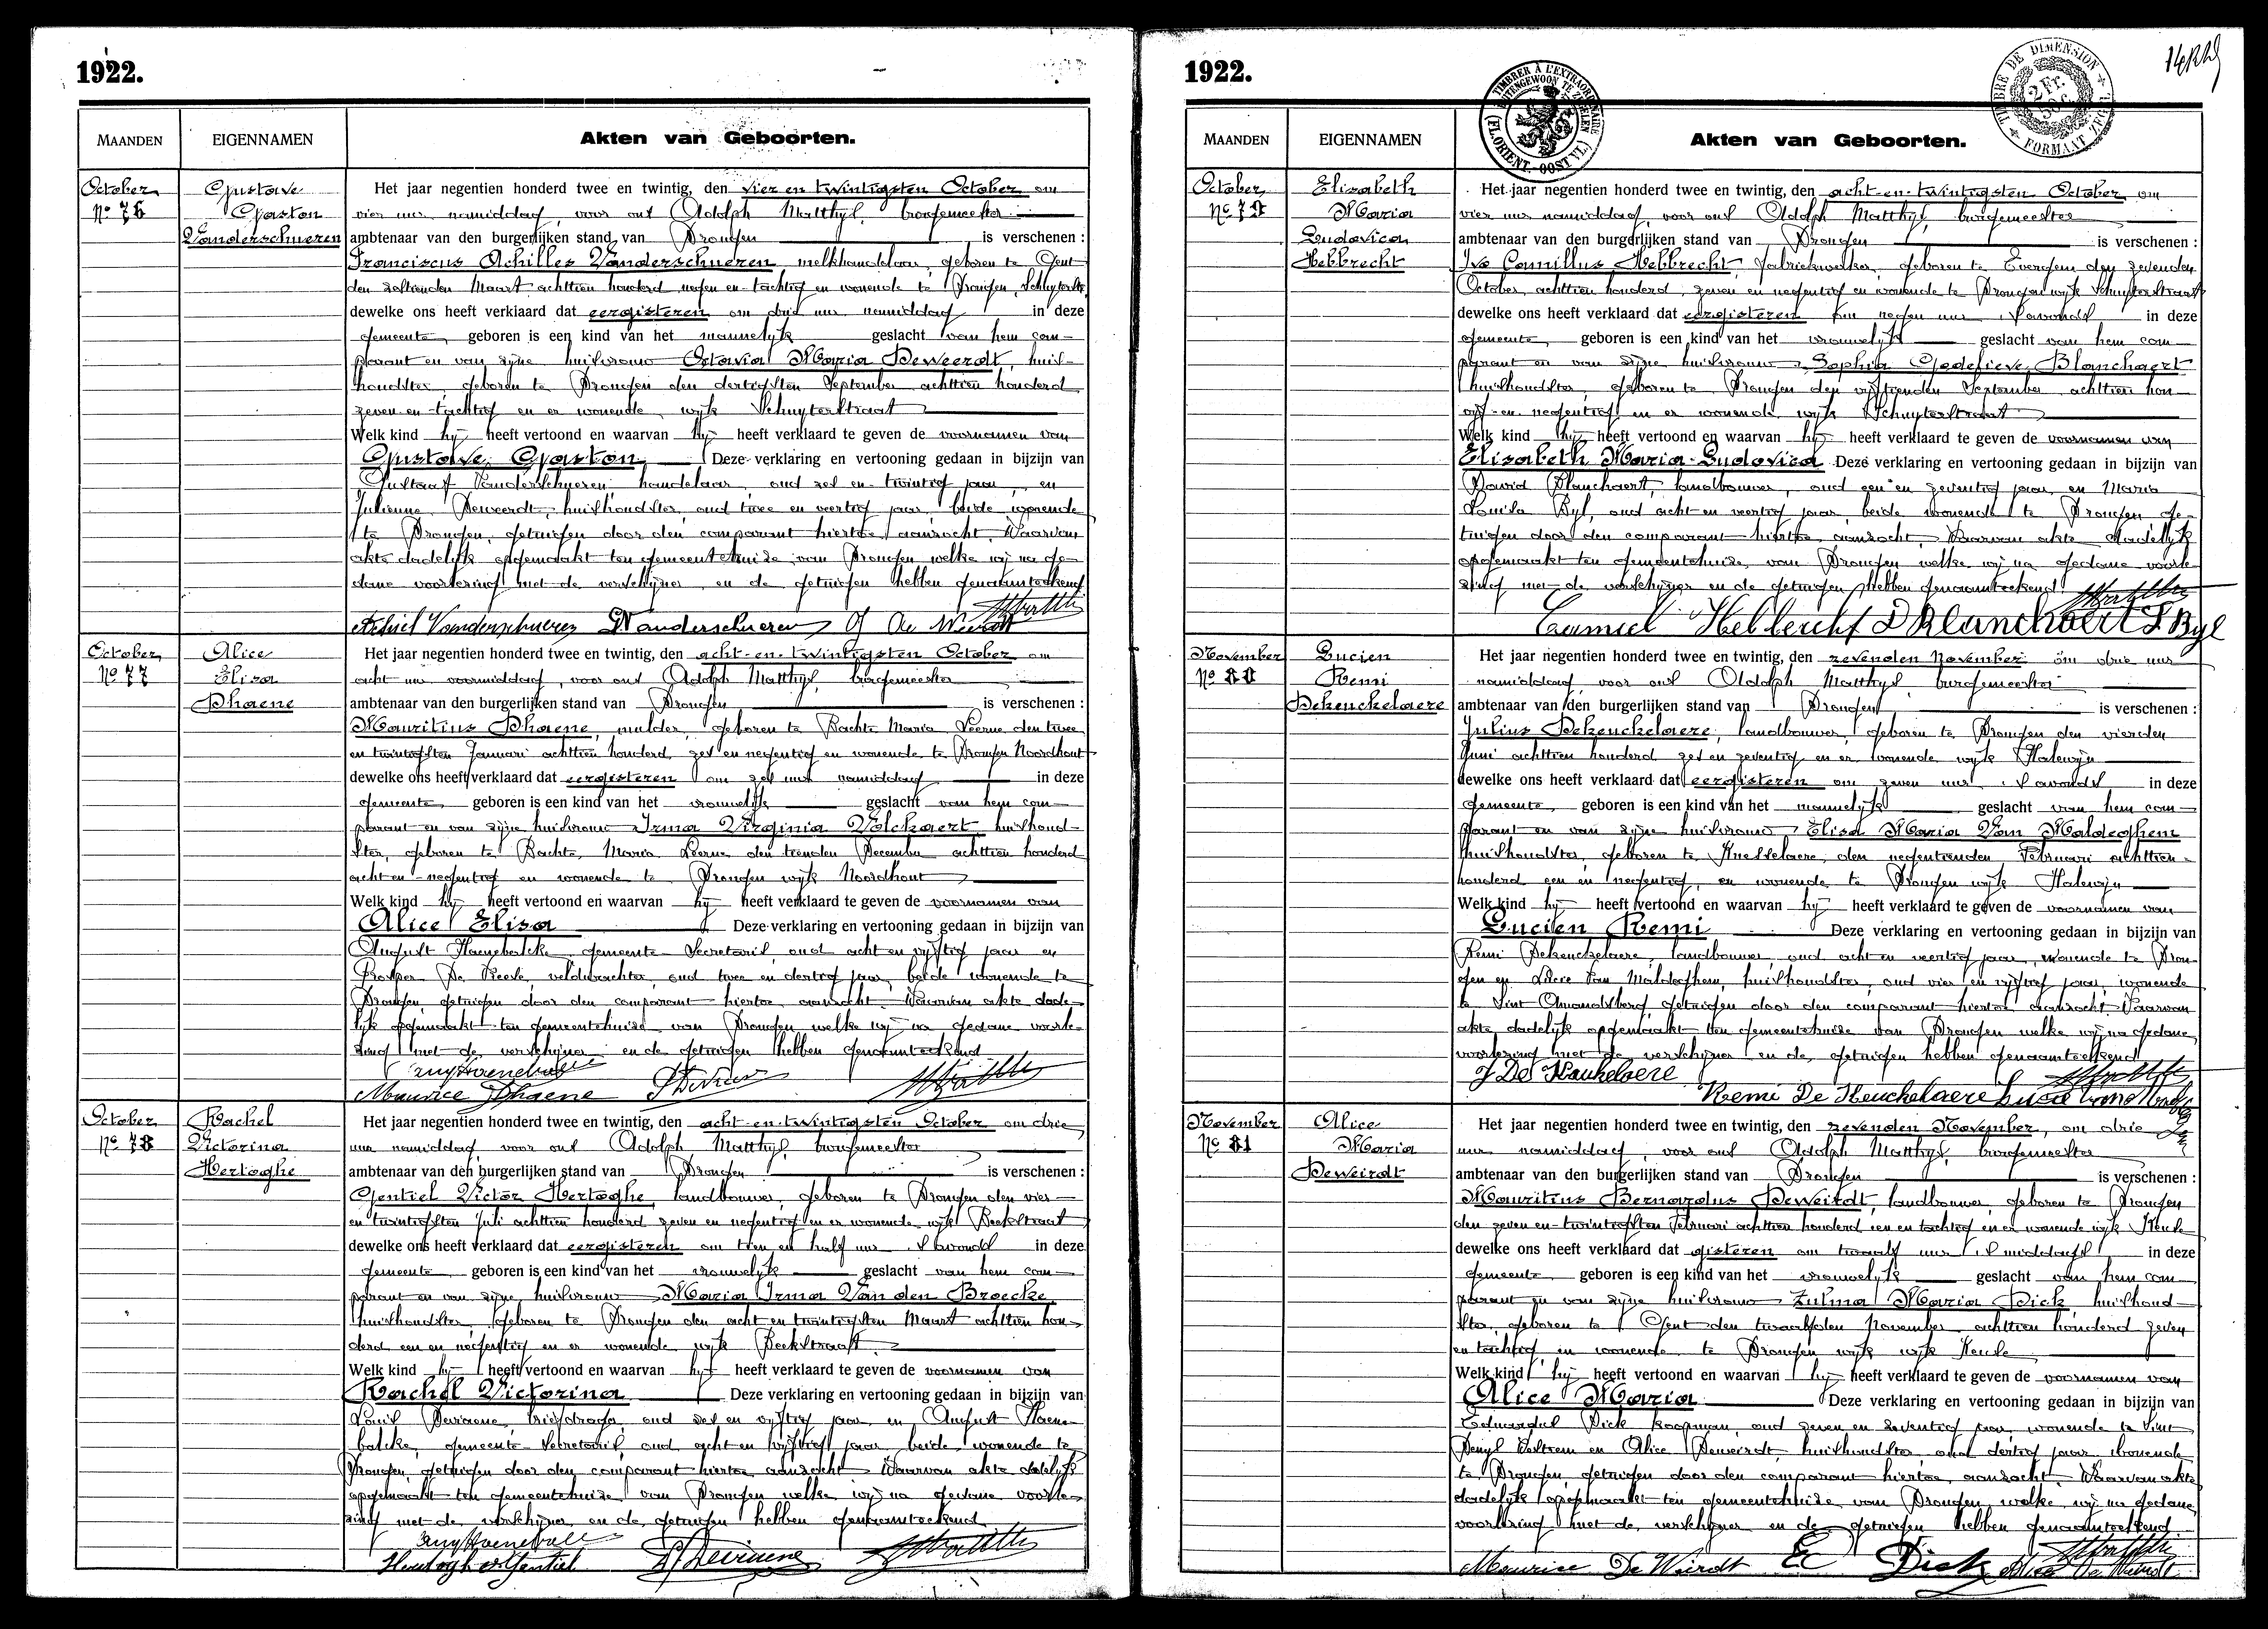 1922.
MAANDEN EIGENNAMEN Akten van Geboorten.
October Gustave Het jaar negentien honderd twee en twintig, den vier en twintigsten October om
No 76 Gaston vier uur namiddag, voor ons Adolph Matthys, burgemeester
Vanderschueren ambtenaar van den burgerlijken stand van Drongen is verschenen :
Franciscus Achilles Vanderschueren, melkhandelaar, geboren te Gent
den zestienden Maart achttien honderd negen en tachtig en wonende te Drongen, Schuyterstr.
dewelke ons heeft verklaard dat eergisteren om drie uur namiddag in deze
gemeente geboren is een kind van het mannelijk geslacht van hem com-
parant en van zijne huisvrouw Octavia Maria Deweerdt, huis-
houdster, geboren te Drongen den dertigsten September achttien honderd
zeven en tachtig en er wonende, wijk Schuyterstraat
Welk kind hij heeft vertoond en waarvan hij heeft verklaard te geven de voornamen van
Gustave Gaston Deze verklaring en vertooning gedaan in bijzijn van
Gustaaf Vanderschueren, handelaar, oud zes en twintig jaar, en
Julienne Deweerdt, huishoudster, oud twee en veertig jaar, beide wonende
te Drongen, getuigen door den comparant hiertoe aanzocht. Waarvan
akte dadelijk opgemaakt ten gemeentehuize van Drongen welke wij na ge-
dane voorlezing met de verschijner en de getuigen hebben genaamteekend
Achiel Vanderschueren G Vanderschueren J De Weerdt
October Alice Het jaar negentien honderd twee en twintig, den acht-en-twintigsten October om
No 77 Elisa acht uur voormiddag, voor ons Adolph Matthys, burgemeester
Dhaene ambtenaar van den burgerlijken stand van Drongen is verschenen :
Mauritius Dhaene, mulder, geboren te Bachte Maria Leerne den twee
en twintigsten Januari achttien honderd zes en negentig en wonende te Drongen Noordhout
dewelke ons heeft verklaard dat eergisteren om zes uur namiddag in deze
gemeente geboren is een kind van het vrouwelijk geslacht van hem com-
parant en van zijne huisvrouw Irma Virginia Volckaert huishoud-
ster, geboren te Bachte Maria Leerne den tienden December achttien honderd
acht en negentig en wonende te Drongen wijk Noordhout
Welk kind hij heeft vertoond en waarvan hij heeft verklaard te geven de voornamen van
Alice Elisa Deze verklaring en vertooning gedaan in bijzijn van
August Haenebalcke, gemeente-Secretaris, oud acht en vijftig jaar en
Prosper De Reeve, veldwachter, oud twee en dertig jaar, beide wonende te
Drongen, getuigen door den comparant hiertoe aanzocht. Waarvan akte dade-
lijk opgemaakt ten gemeentehuize van Drongen welke wij na gedane voorle-
zing met de verschijner en de getuigen hebben genaamteekend
Maurice Dhaene
October Rachel Het jaar negentien honderd twee en twintig, den acht-en-twintigsten October om drie
No 78 Victorina uur namiddag, voor ons Adolph Matthys, burgemeester
Hertoghe ambtenaar van den burgerlijken stand van Drongen is verschenen :
Gentiel Victor Hertoghe, landbouwer, geboren te Drongen den vier-
en twintigsten Juli achttien honderd zeven en negentig en er wonende wijk Beekstraat
dewelke ons heeft verklaard dat eergisteren om tien en half uur 's avonds in deze
gemeente geboren is een kind van het vrouwelijk geslacht van hem com-
parant en van zijne huisvrouw Maria Irma Van den Broecke
huishoudster, geboren te Drongen den acht en twintigsten Maart achttien hon-
derd een en negentig en er wonende wijk Beekstraat
Welk kind hij heeft vertoond en waarvan hij heeft verklaard te geven de voornamen van
Rachel Victorina Deze verklaring en vertooning gedaan in bijzijn van
Louis Deviaene, briefdrager, oud zes en vijftig jaar, en August Haene-
balcke, gemeente-Secretaris, oud acht en vijftig jaar beide wonende te
Drongen, getuigen door den comparant hiertoe aanzocht. Waarvan akte dadelijk
opgemaakt ten gemeentehuize van Drongen welke wij na gedane voorle-
zing met de verschijner en de getuigen hebben genaamteekend
Hertoghe Gentiel
1922.
TIMBRER À L'EXTRAORDINAIRE BUITENGEWOON TE ZEGELEN (FL. ORIENT.-OOST VL.)
TIMBRE DE DIMENSION FORMAAT ZEGEL 2 Fr.
MAANDEN EIGENNAMEN Akten van Geboorten.
October Elisabeth Het jaar negentien honderd twee en twintig, den acht-en-twintigsten October om
No 79 Maria vier uur namiddag, voor ons Adolph Matthys burgemeester
Ludovica ambtenaar van den burgerlijken stand van Drongen is verschenen :
Hebbrecht Ivo Camillus Hebbrecht, fabriekwerker, geboren te Evergem den zevenden
October achttien honderd zeven en negentig en wonende te Drongen wijk Schuyterstraat
dewelke ons heeft verklaard dat eergisteren om negen uur 's avonds in deze
gemeente geboren is een kind van het vrouwelijk geslacht van hem com-
parant en van zijne huisvrouw Sophia Godelieve Blanchaert
huishoudster, geboren te Drongen den vijftienden September achttien hon-
vijf en negentig en er wonende wijk Schuyterstraat
Welk kind hij heeft vertoond en waarvan hij heeft verklaard te geven de voornamen van
Elisabeth Maria-Ludovica Deze verklaring en vertooning gedaan in bijzijn van
David Blanchaert, landbouwer, oud een en zeventig jaar, en Maria
Louisa Byl, oud acht en veertig jaar, beide wonende te Drongen ge-
tuigen door den comparant hiertoe aanzocht. Waarvan akte dadelijk
opgemaakt ten gemeentehuize van Drongen welke wij na gedane voorle-
zing met de verschijner en de getuigen hebben genaamteekend
Camiel Hebbrecht D Blanchaert L Byl
November Lucien Het jaar negentien honderd twee en twintig, den zevenden November om drie uur
No 80 Remi namiddag voor ons Adolph Matthys, burgemeester
Dekeuckelaere ambtenaar van den burgerlijken stand van Drongen is verschenen :
Julius Dekeuckelaere, landbouwer, geboren te Drongen den vierden
Juni achttien honderd zes en zeventig en er wonende wijk Halewijn
dewelke ons heeft verklaard dat eergisteren om zeven uur 's avonds in deze
gemeente geboren is een kind van het mannelijk geslacht van hem com-
parant en van zijne huisvrouw Elisa Maria Van Maldeghem
huishoudster, geboren te Knesselaere, den negentienden Februari achttien
honderd een en negentig, en wonende te Drongen wijk Halewijn
Welk kind hij heeft vertoond en waarvan hij heeft verklaard te geven de voornamen van
Lucien Remi Deze verklaring en vertooning gedaan in bijzijn van
Remi Dekeuckelaere, landbouwer, oud acht en veertig jaar, wonende te Dron-
gen en Van Maldeghem, huishoudster, oud vier en vijftig jaar, wonende
te Sint Amandsberg, getuigen door den comparant hiertoe aanzocht. Waarvan
akte dadelijk opgemaakt ten gemeentehuize van Drongen welke wij na gedane
voorlezing met de verschijner en de getuigen hebben genaamteekend
J De Keukelaere
Remi De Keuckelaere
November Alice Het jaar negentien honderd twee en twintig, den zevenden November, om drie
No 81 Maria uur namiddag, voor ons Adolph Matthys, burgemeester
Deweirdt ambtenaar van den burgerlijken stand van Drongen is verschenen :
Mauritius Bernardus Deweirdt, landbouwer, geboren te Drongen
den zeven en twintigsten Februari achttien honderd een en tachtig en er wonende wijk Keuze
dewelke ons heeft verklaard dat gisteren om twaalf uur 's middags in deze
gemeente geboren is een kind van het vrouwelijk geslacht van hem com-
parant en van zijne huisvrouw Zulma Maria Dick, huishoud-
ster, geboren te Gent den twaalfden November achttien honderd zeven
en tachtig en wonende te Drongen wijk wijk Keuze
Welk kind hij heeft vertoond en waarvan hij heeft verklaard te geven de voornamen van
Alice Maria Deze verklaring en vertooning gedaan in bijzijn van
Eduardus Dick koopman, oud zeven en zeventig jaar, wonende te Sint
Denys Westrem en Alice Deweirdt, huishoudster, oud dertig jaar wonende
te Drongen getuigen door den comparant hiertoe aanzocht. Waarvan akte
dadelijk opgemaakt ten gemeentehuize van Drongen, welke wij na gedane
voorlezing met de verschijner en de getuigen hebben genaamteekend
Maurice De Weirdt Ed Dick Alice De Weirdt